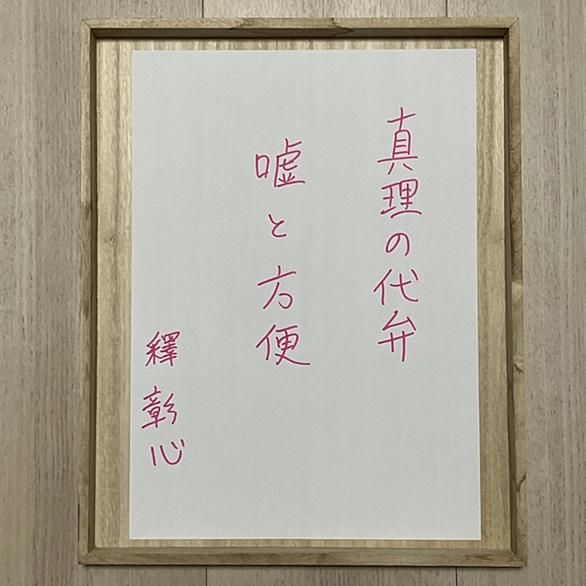 真理の代弁
嘘と方便
釋彰心